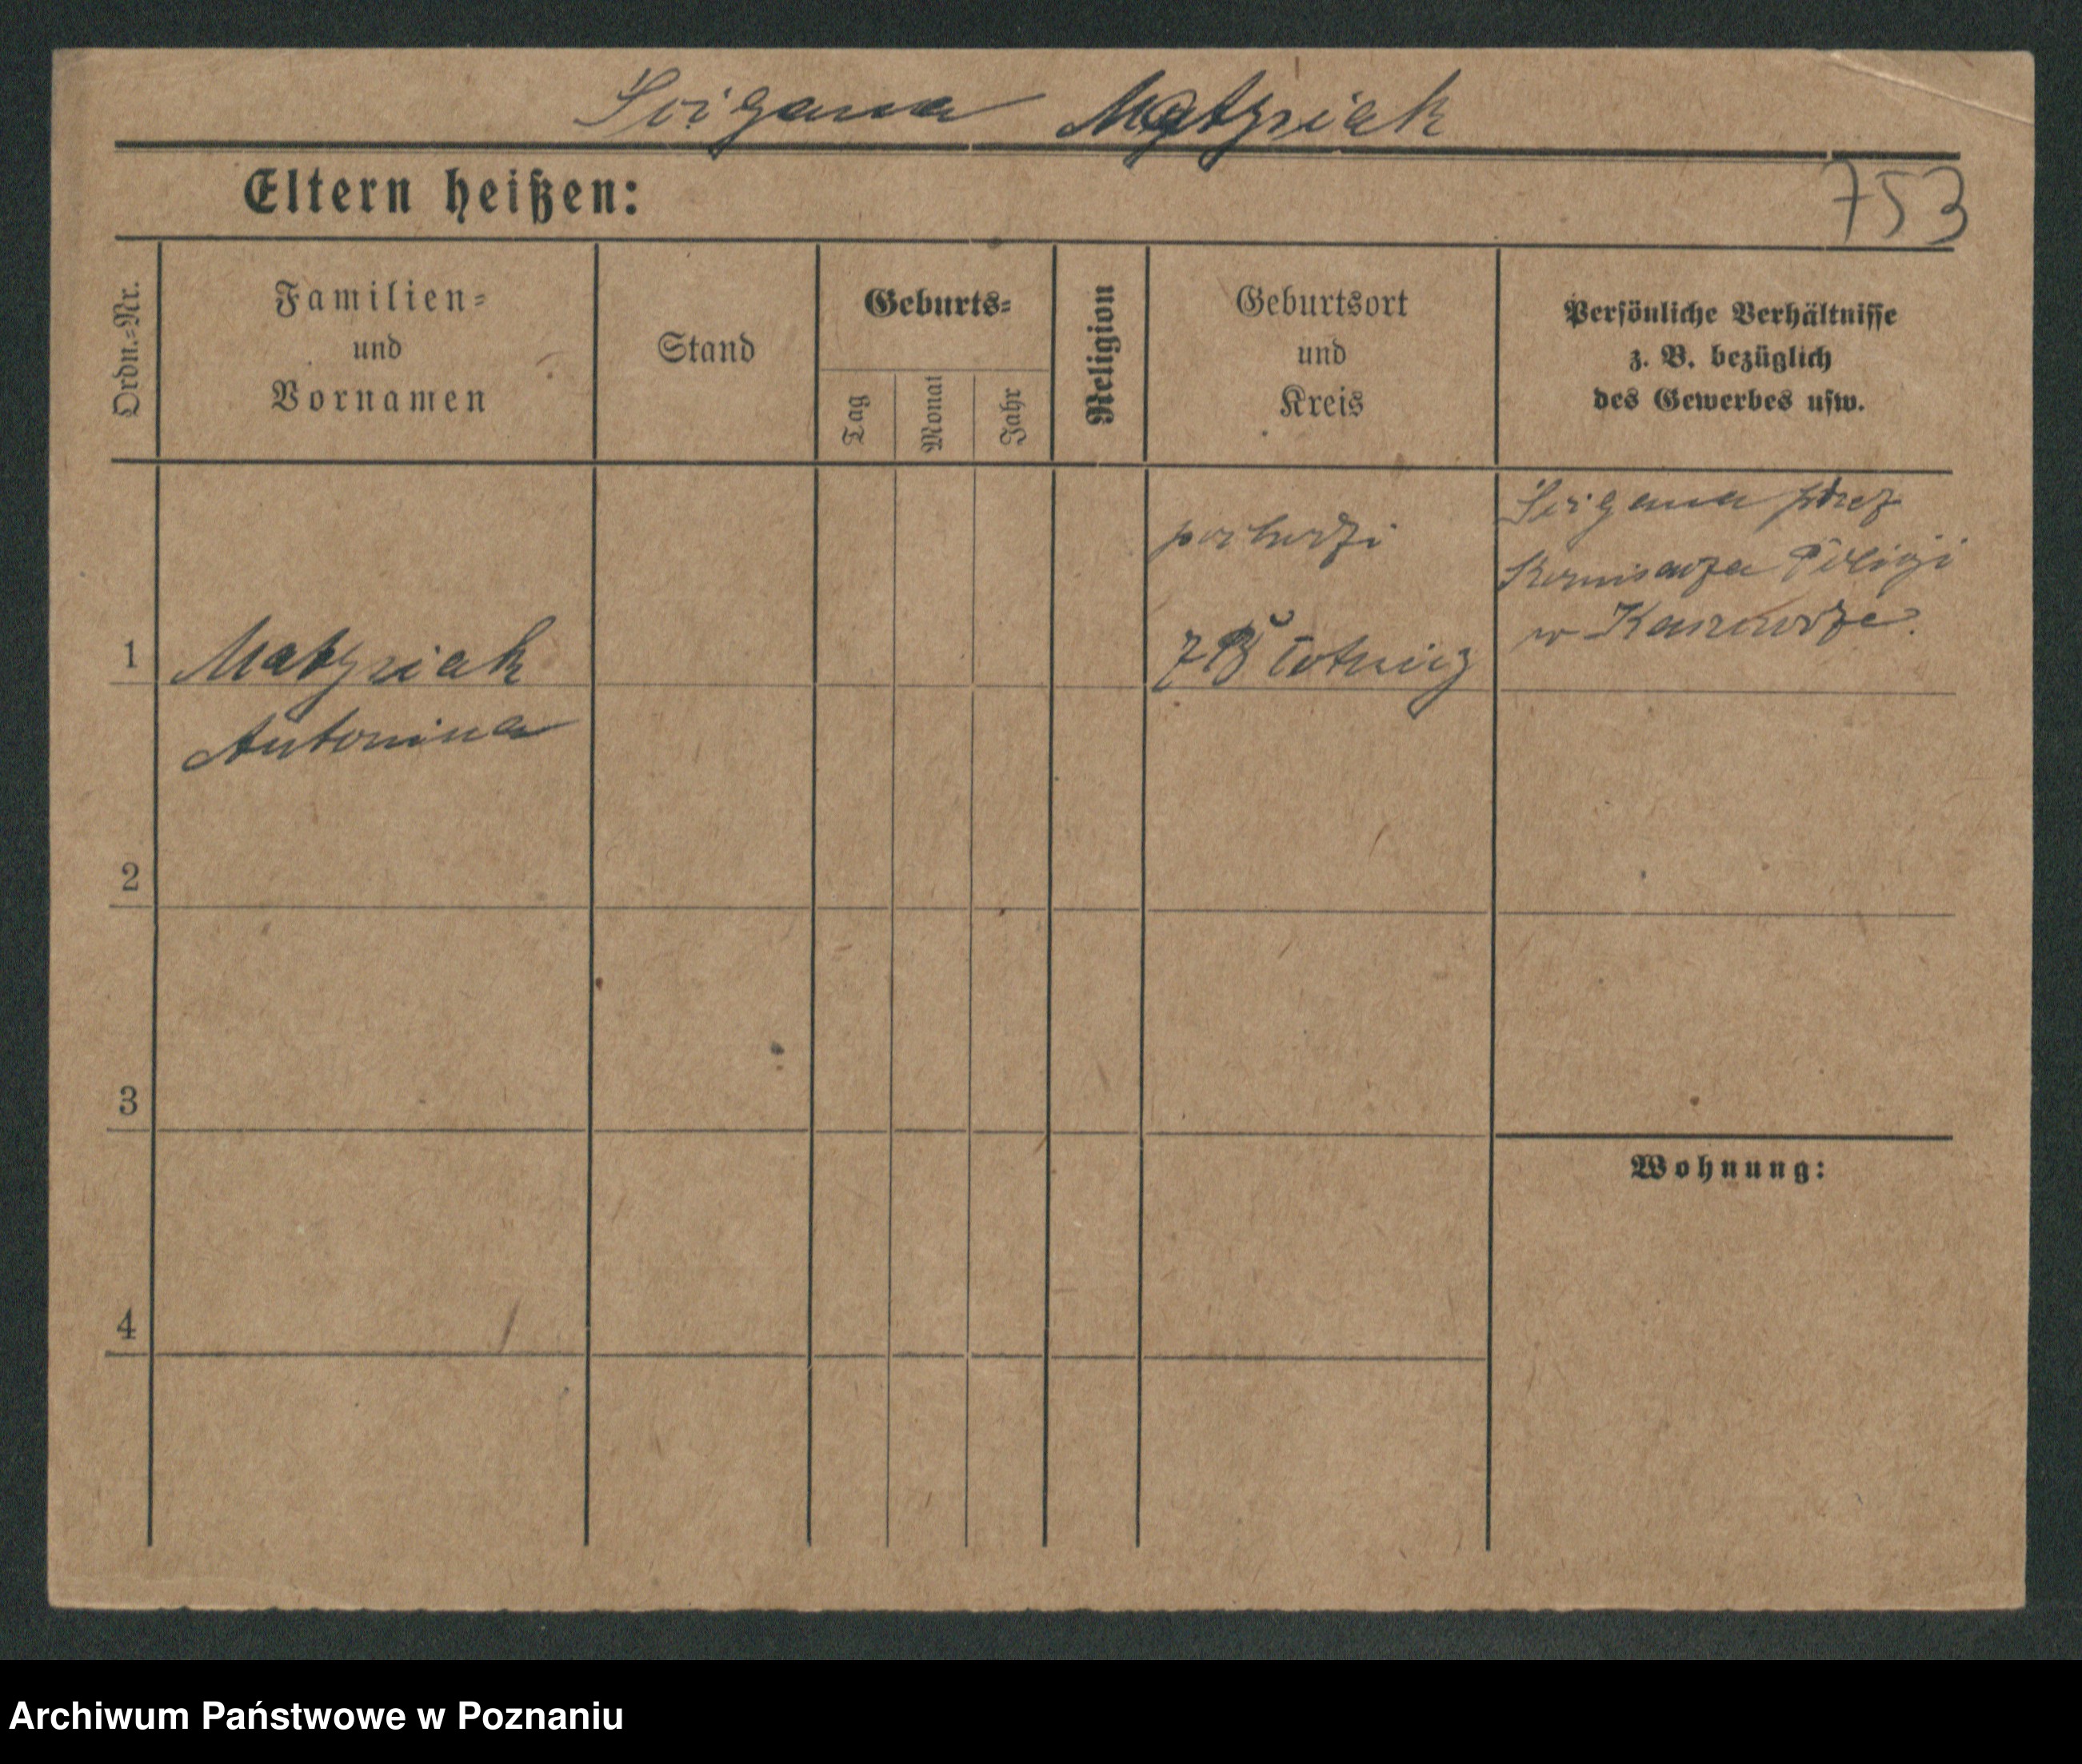 Ścigana Matysiak
Eltern heißen:
753
Ordn.=Nr.
Familien=
und
Vornamen
Stand
Geburts=
Tag
Monat
Jahr
Religion
Geburtsort
und
Kreis
Persönliche Verhältnisse
z. B. bezüglich
des Gewerbes usw.
pochodzi
Ścigana przez
Komisarza Policji
w
1
Matysiak
Antonina
2
3
Wohnung:
4
Archiwum Państwowe w Poznaniu